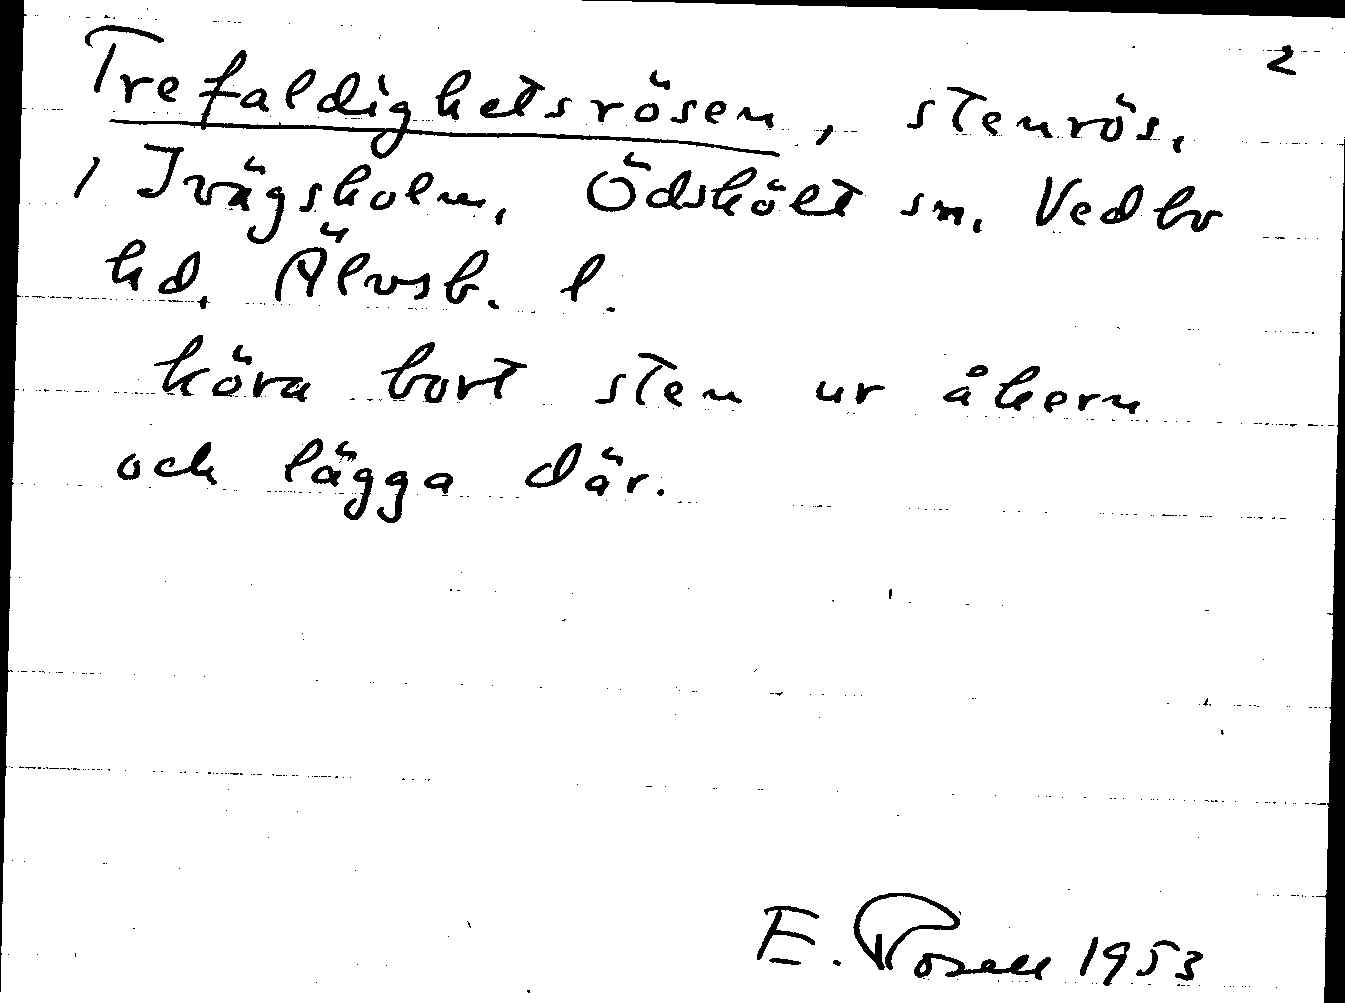 2
Trefaldighetsrösen, stenrös,
1 Ivägsholm, Ödskölt sn, Vedbo
hd, Älvsb. l.
köra bort sten ur åkern
och lägga där.
E. Rosell 1953